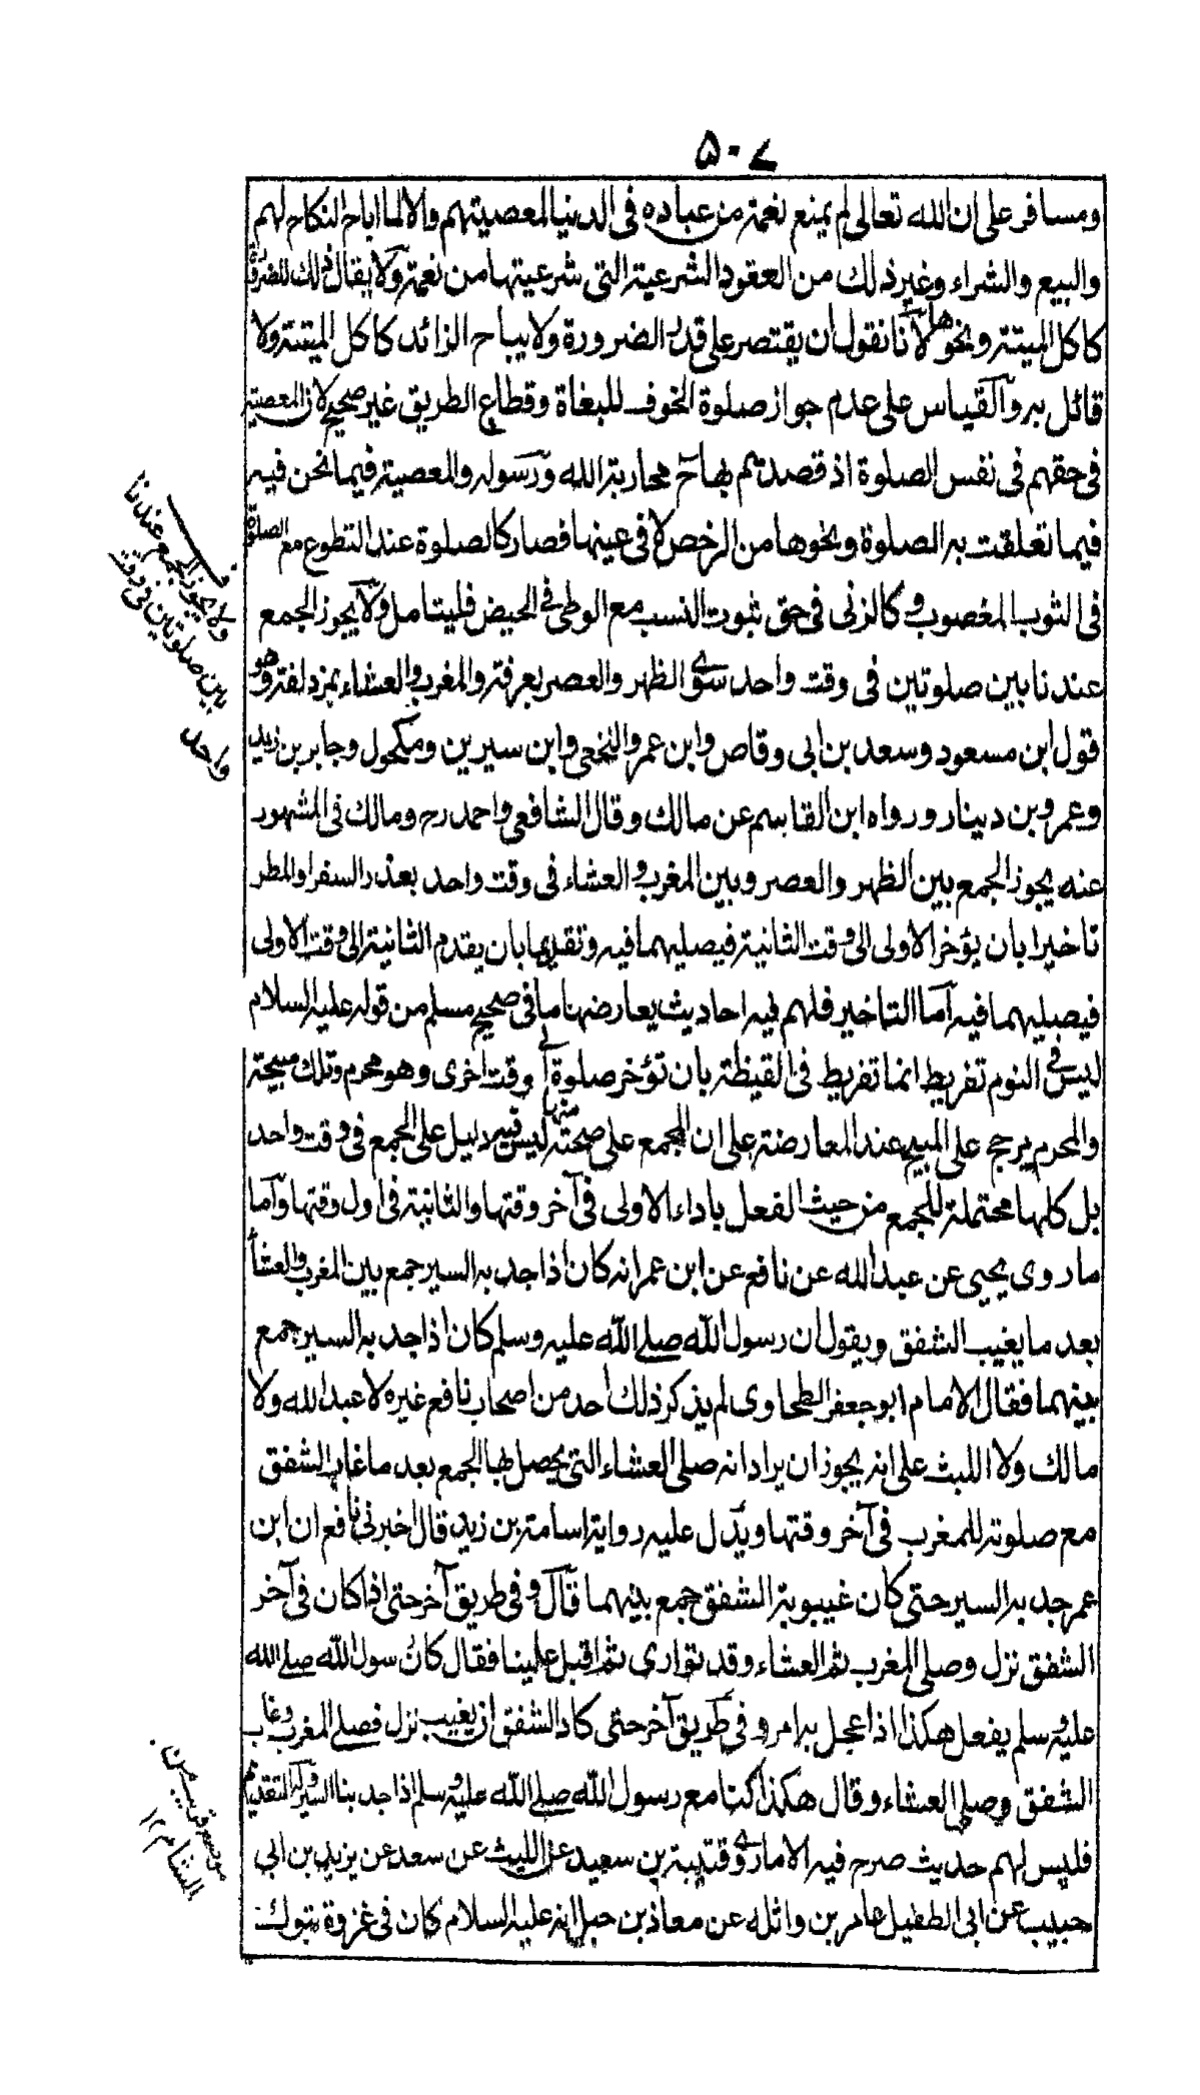 ۵۰۷
ومسافر على ان الله تعالى لم يمنع نعمته من عباده فى الدنيا لمعصيتهم والا لما اباح النكاح لهم
والبيع والشراء وغير ذلك من العقود الشرعية التى شرعيتها من نعمته ولا يقال ذلك للضرورة
كاكل الميتة ونحوها لانا نقول ان يقتصر على قدر الضرورة ولا يباح الزائد كاكل الميتة ولا
قائل به والقياس على عدم جواز صلوة الخوف للبغاة وقطاع الطريق غير صحيح لان المعصية
فى حقهم فى نفس الصلوة اذ قصدتهم بهاح محاربة الله ورسوله والمعصية فيما نحن فيه
فيما تعلقت به الصلوة ونحوها من الرخص لا فى عينها فصار كالصلوة عند التطوع مع الصلوة
فى الثوب المغصوب وكالزنى فى حق ثبوت النسب مع الوطى فى الحيض فليتامل ولا يجوز الجمع
عندنا بين صلوتين فى وقت واحد سوى الظهر والعصر بعرفة والمغرب والعشاء بمزدلفة وهو
قول ابن مسعود وسعد بن ابى وقاص وابن عمر والنخعى وابن سيرين ومكحول وجابر بن زيد
وعمرو بن دينار ورواه ابن القاسم عن مالك وقال الشافعى واحمد رح ومالك فى المشهور
عنه يجوز الجمع بين الظهر والعصر وبين المغرب والعشاء فى وقت واحد بعذر السفر او المطر
تاخيرا بان يؤخر الاولى الى وقت الثانية فيصليهما فيه وتقديما بان يقدم الثانية الى وقت الاولى
فيصليهما فيه اما التاخير فلهم فيه احاديث يعارضها ما فى صحيح مسلم من قوله عليه السلام
ليس فى النوم تفريط انما تفريط فى اليقظة بان تؤخر صلوة الى وقت اخرى وهو محرم وتلك مبيحة
والمحرم يرجح على المبيح عند المعارضة على ان المجمع على صحته منها ليس فيه دليل على الجمع فى وقت واحد
بل كلها محتملة للجمع من حيث الفعل باداء الاولى فى آخر وقتها والثانية فى اول وقتها واما
ما روى يحيى عن عبد الله عن نافع عن ابن عمر انه كان اذا جد به السير جمع بين المغرب والعشأ
بعد ما يغيب الشفق ويقول ان رسول الله صلى الله عليه وسلم كان اذا جد به السير جمع
بينهما فقال الامام ابو جعفر الطحاوى لم يذكر ذلك احد من اصحاب نافع غيره لا عبد الله ولا
مالك ولا الليث على انه يجوز ان يراد انه صلى العشاء التى يحصل لها الجمع بعد ما غاب الشفق
مع صلوته للمغرب فى آخر وقتها ويدل عليه رواية اسامة بن زيد قال اخبرنى نافع ان ابن
عمر جد به السير حتى كان غيبوبة الشفق جمع بينهما قال وفى طريق آخر حتى اذا كان فى آخر
الشفق نزل وصلى المغرب ثم العشاء وقد توارى ثم اقبل علينا فقال كان رسول الله صلى الله
عليه وسلم يفعل هكذا اذا عجل به امر وفى طريق آخر حتى كاد الشفق ان يغيب نزل فصلى المغرب وغاب
الشفق وصلى العشاء وقال هكذا كنا مع رسول الله صلى الله عليه وسلم اذا جد بنا السير واما التقديم
فليس لهم حديث صرح فيه الا ما روى قتيبة بن سعيد عن الليث عن سعد عن يزيد بن ابى
حبيب عن ابى الطفيل عامر بن واثلة عن معاذ بن جبل انه عليه السلام كان فى غزوة تبوك
ولا يجوز الجمع عندنا
بين صلوتين فى وقت
واحد
موضع قريب من
الشام ۱۲